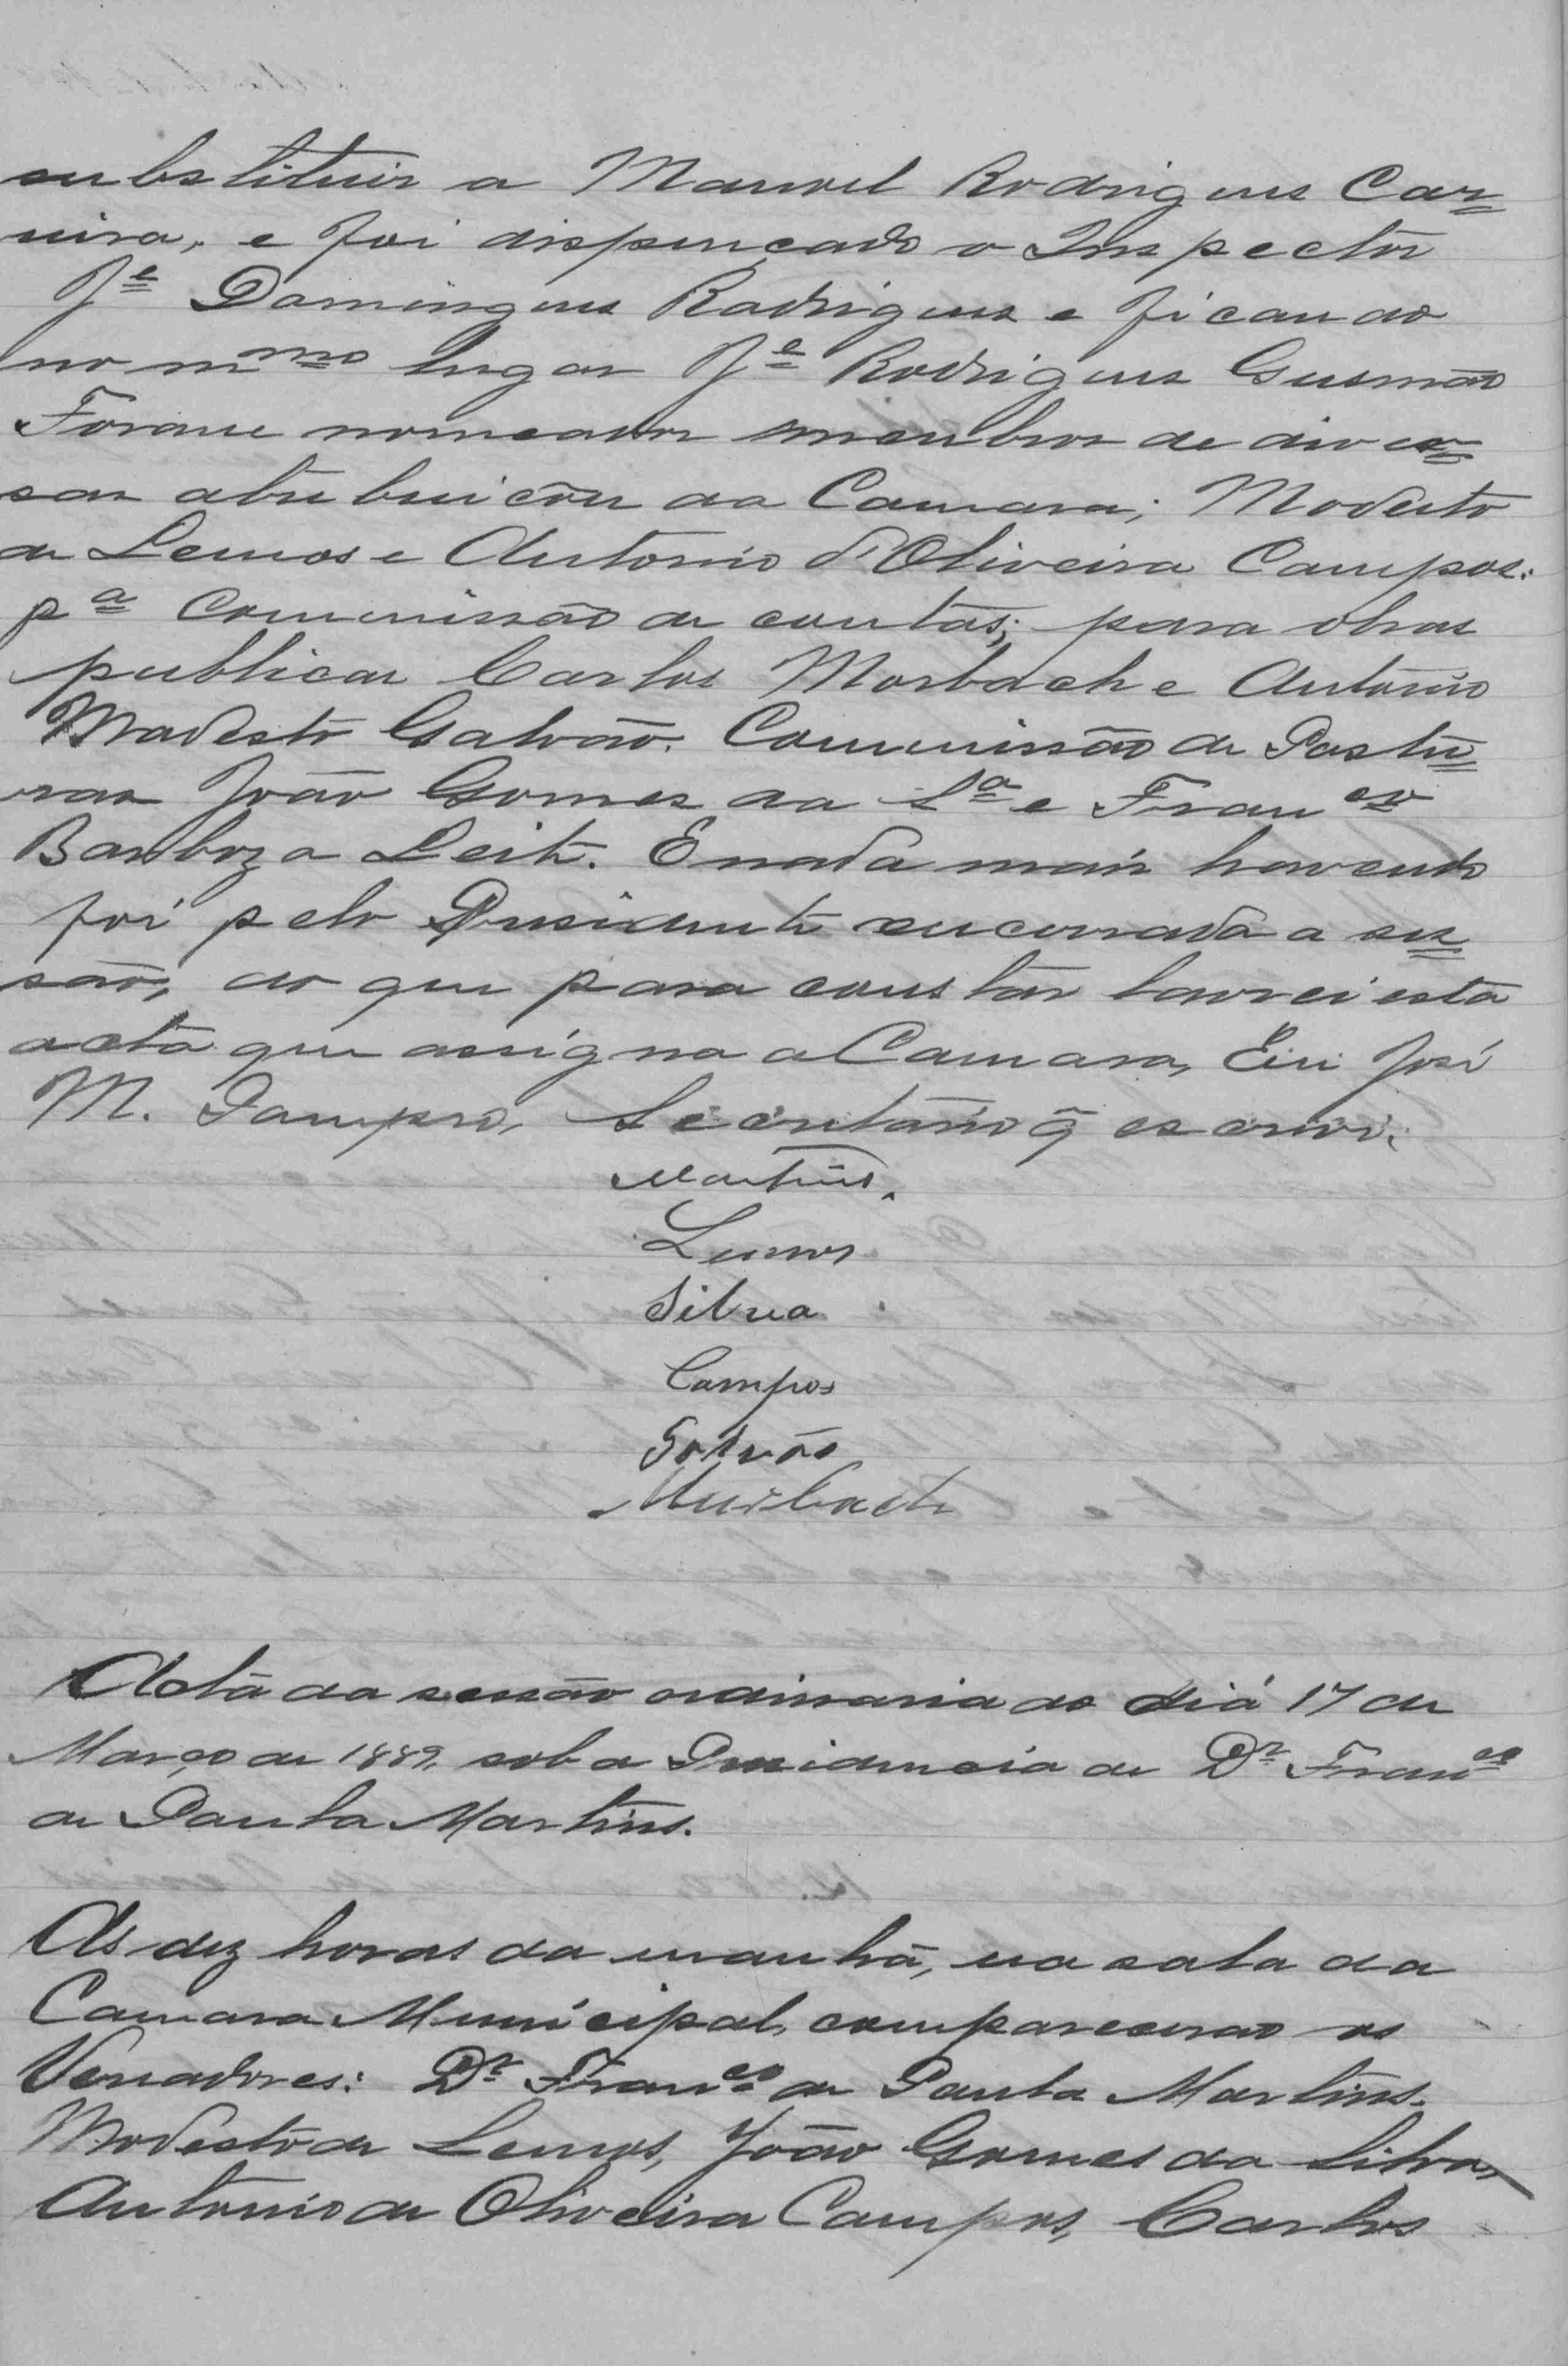 substituir a Manoel Rodrigues Car=
neira, e foi dispençado o Inspector
Je Domingues Rodrigues e ficando
no mmo lugar Je Rodrigues Gusmão
Foram nomeados membros de diver=
sas atribuicões da Camara; Modesto
de Lemos e Antonio d'Oliveira Campos:
pa Commissão de contas; para obras
publicas Carlos Morbach e Antonio
Modesto Galvão. Commissão de Postu=
ras João Gomes da Sa e Franco
Barboza Leite. E nada mais havendo
foi pelo Presidente encerrada a ses=
são, do que para constar lavrei esta
acta que assigna a Camara, Eu José
M. Sampro, Secretario q̃ escrevi.
Martins.
Lemos
Silva
Campos
Galvão
Murbach
Acta da sessão ordinaria do dia 17 de
Março de 1889, sob a Presidencia de Dr Franco
de Paula Martins.
As dez horas da manhã, na sala da
Camara Municipal, comparecerao os
Vereadores: Dr Franco de Paula Martins.
Modesto de Lemos, João Gomes da Silva,
Antonio de Oliveira Campos, Carlos